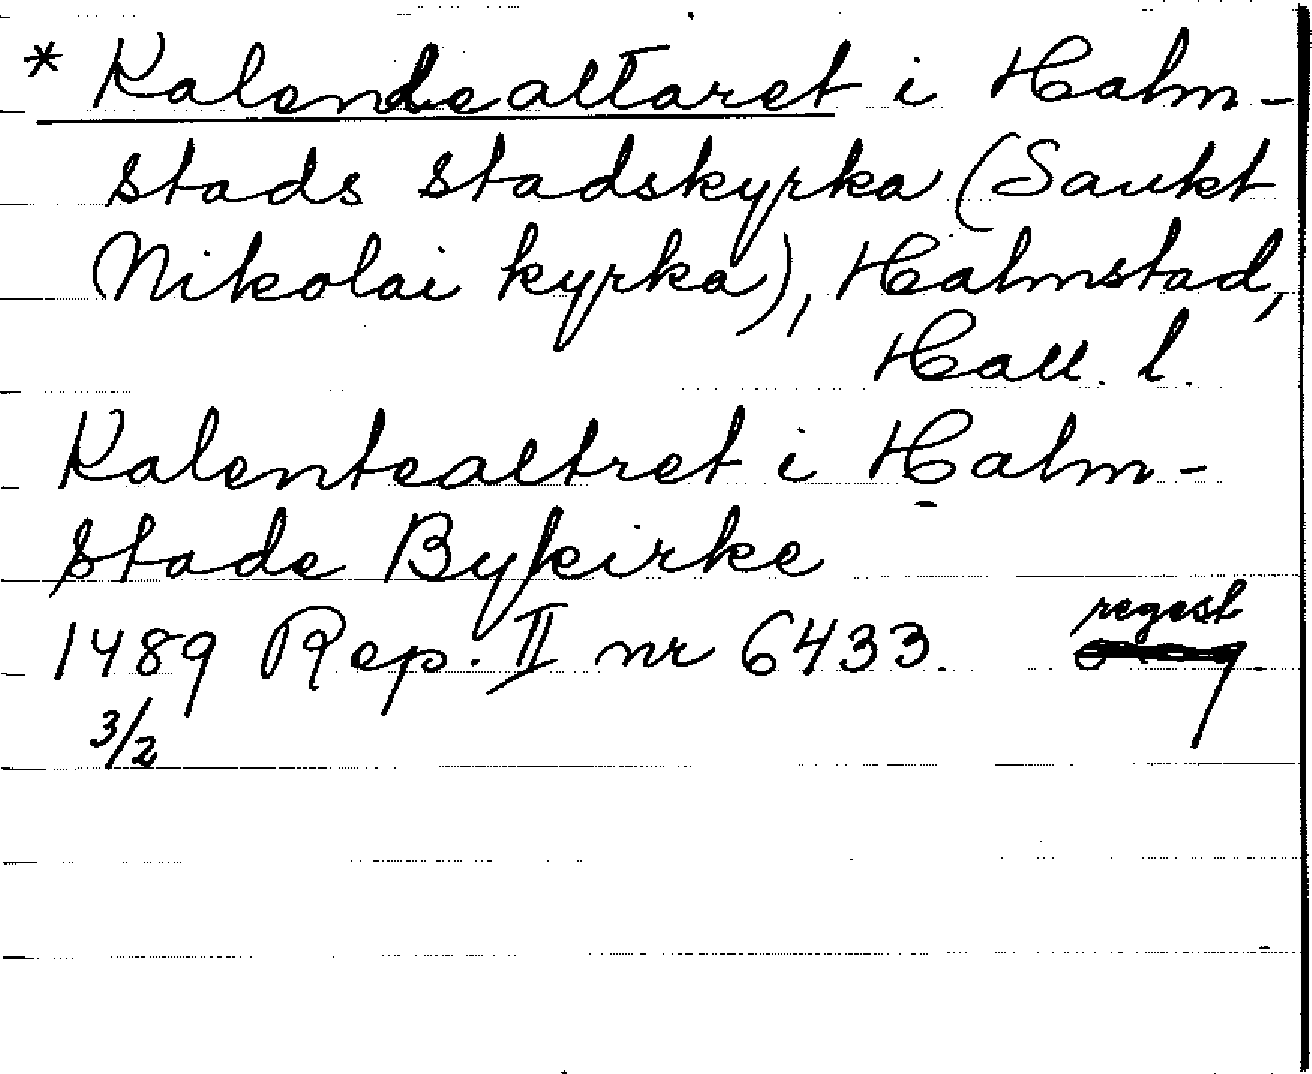 * Kalendealtaret i Halm-
stads stadskyrka (Sankt
Nikolai kyrka), Halmstad,
Hall. l.
Kalentealtret i Halm-
stade Bykirke
1489 Rep. II nr 6433. regest
3/2